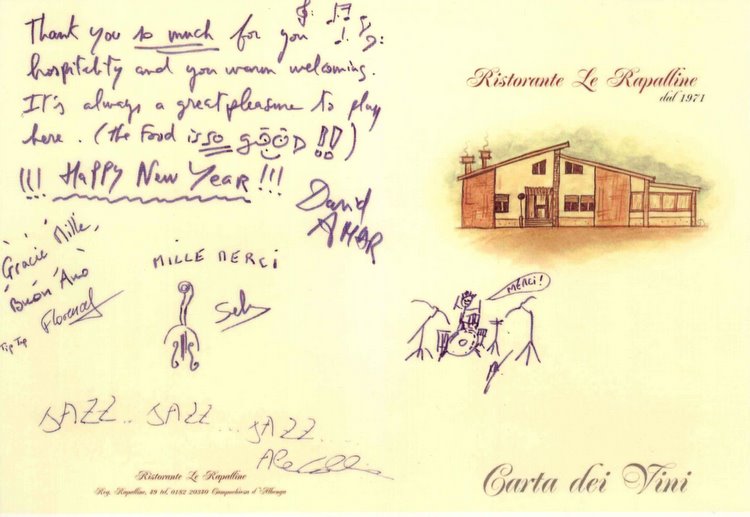 Thank you so much for you
hospitality and you warm welcoming.
It's always a great pleasure to play
here. (the Food is so gOOD !!)
!!! Happy New Year !!!
David
AMAR
Gracie Mille,
Buon Ano
Florence
Tip Top
MILLE MERCI
Seb
JAZZ.. JAZZ... JAZZ....
Ristorante Le Rapalline
Reg. Rapalline, 49 tel. 0182 20340 Campochiesa d'Albenga
Ristorante Le Rapalline
dal 1971
MERCI!
Carta dei Vini